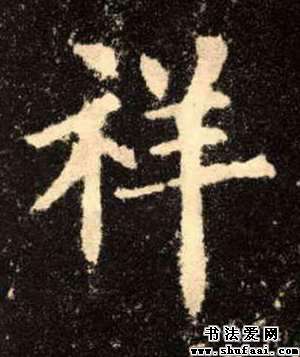 祥
书法爱网
www.shufaai.com